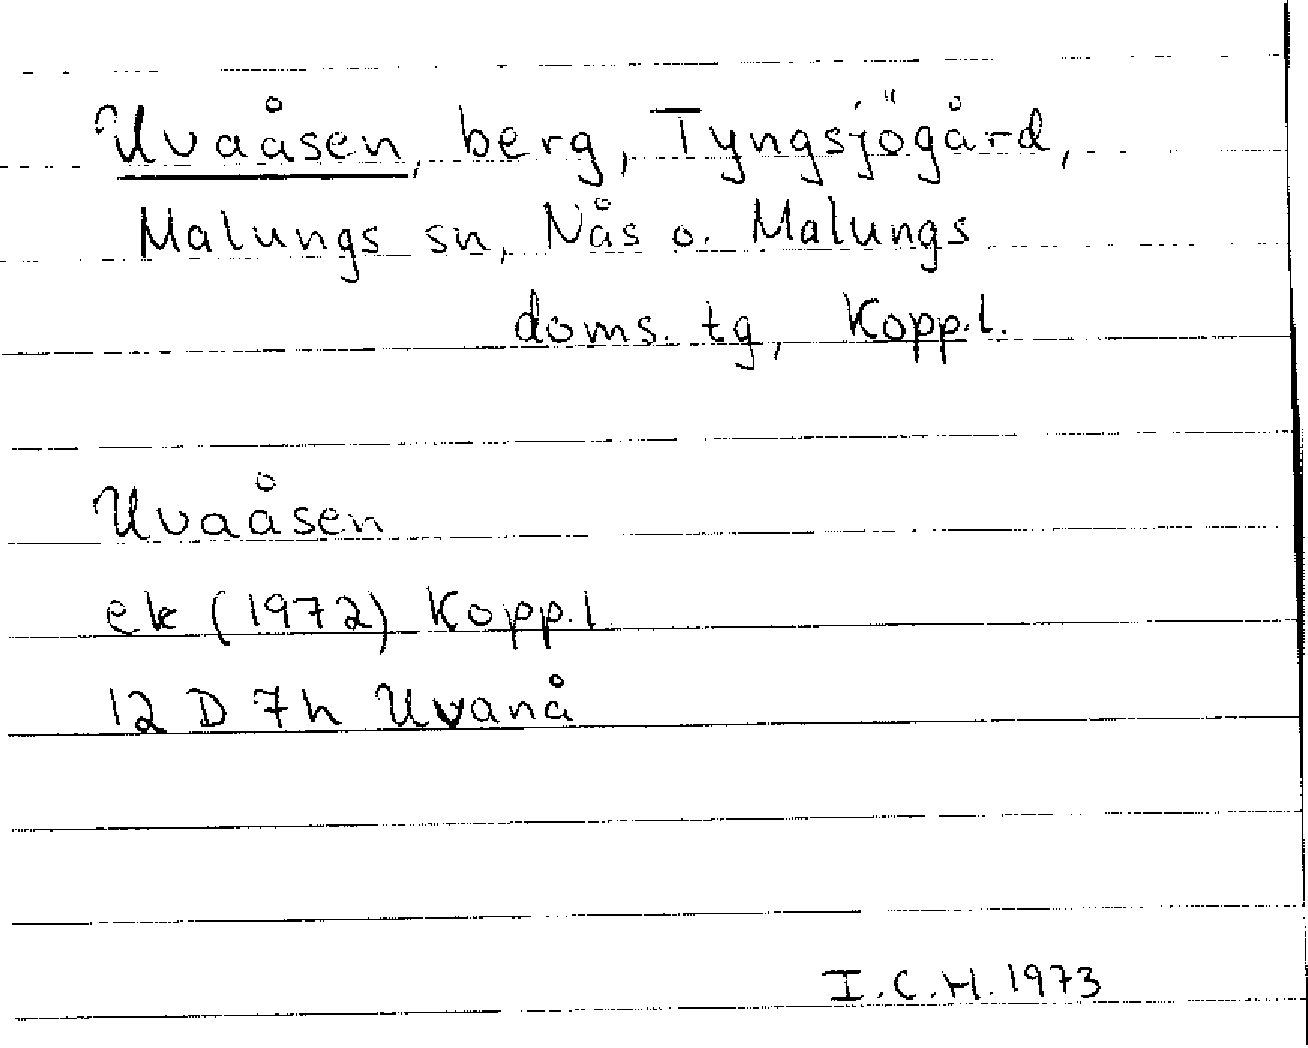 Uvaåsen, berg, Tyngsjögård,
Malungs sn, Nås o. Malungs
doms. tg, Kopp.l.
Uvaåsen
ek (1972) Kopp.l
12 D 7h Uvanå
I.C.H. 1973